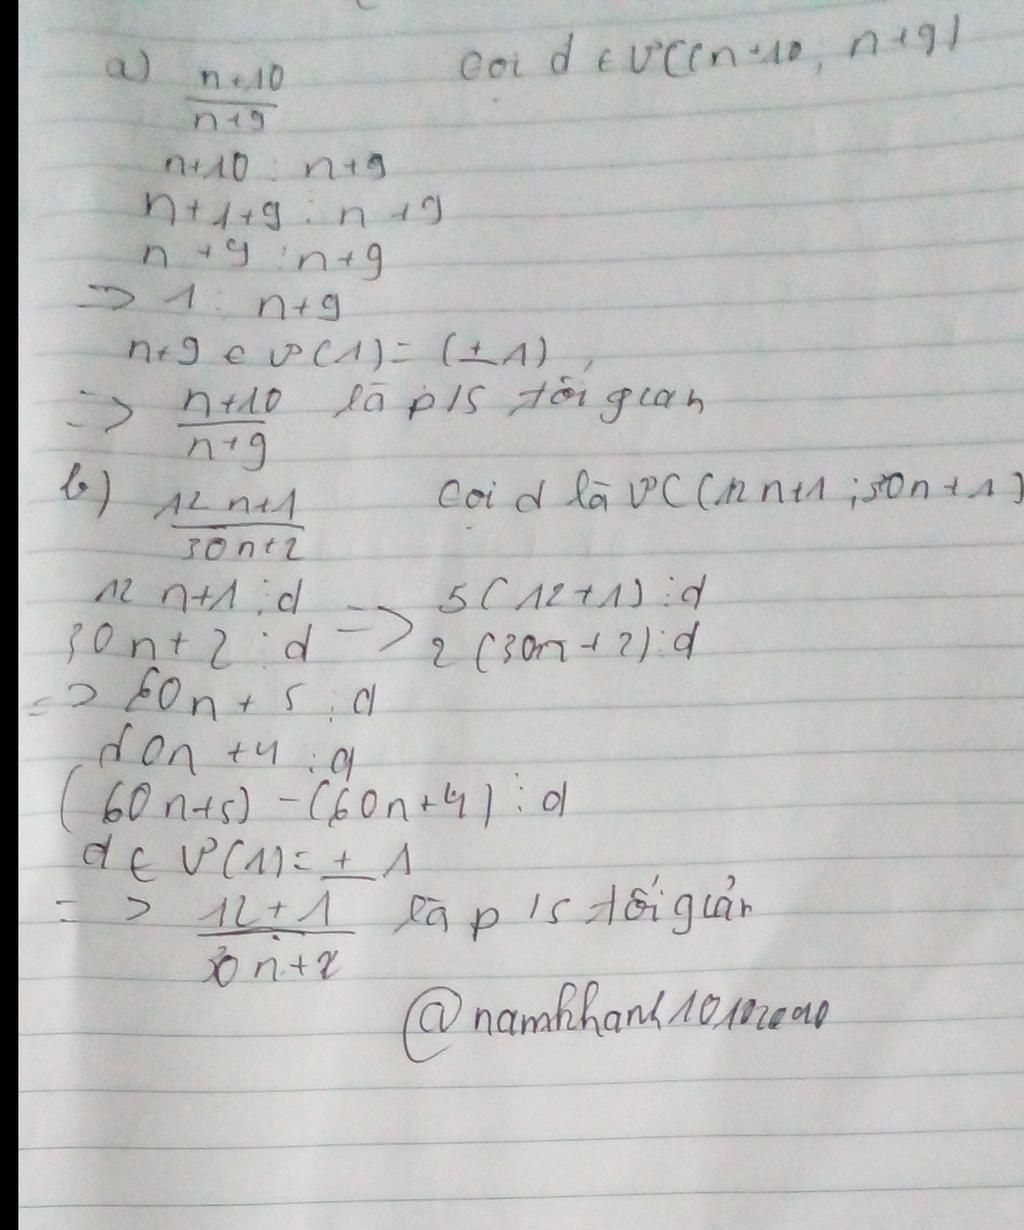 a) n+10/n+9 Coi d ∈ ƯC(n+10, n+9)
n+10 ⋮ n+9
n+1+9 ⋮ n+9
n+9 ⋮ n+9
=> 1 ⋮ n+9
n+9 ∈ Ư(1) = (±1),
=> n+10/n+9 là p/s tối gian
b) 12n+1/30n+2 Coi d là ƯC(12n+1; 30n+1)
12n+1 ⋮ d => 5(12+1) ⋮ d
30n+2 ⋮ d 2(30n+2) ⋮ d
=> 60n+5 ⋮ d
60n+4 ⋮ d
(60n+5)-(60n+4) ⋮ d
d ∈ Ư(1) = ± 1
=> 12+1/30n+2 là p/s tối giản